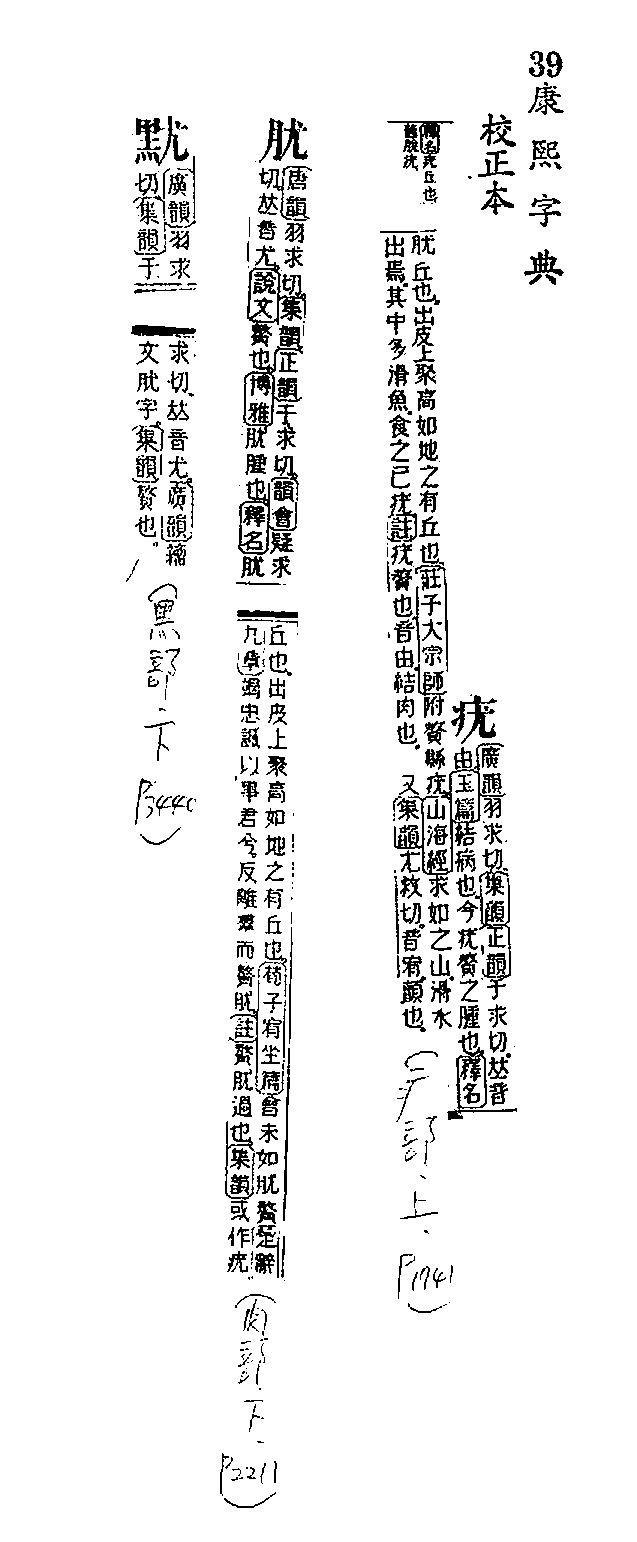 39康熙字典
校正本
疣
廣韻羽求切集韻正韻于求切𠀤音
由玉篇結病也今疣贅之腫也釋名
肬丘也出皮上聚高如地之有丘也莊子大宗師附贅縣疣山海經求如之山滑水
出焉其中多滑魚食之已疣註疣贅也音由結肉也 又集韻尤救切音宥頭也
(疒部.上.
P1741)
肬
唐韻羽求切集韻正韻于求切韻會疑求
切𠀤音尤說文贅也博雅肬腫也釋名肬
丘也出皮上聚高如地之有丘也荀子宥坐篇會未如肬贅楚辭
九章竭忠誠以事君兮反離羣而贅肬註贅肬過也集韻或作疣
(肉部.下.
P2211)
黕
廣韻羽求
切集韻于
求切𠀤音尤廣韻籀
文肬字集韻贅也
(黑部.下
P3440)